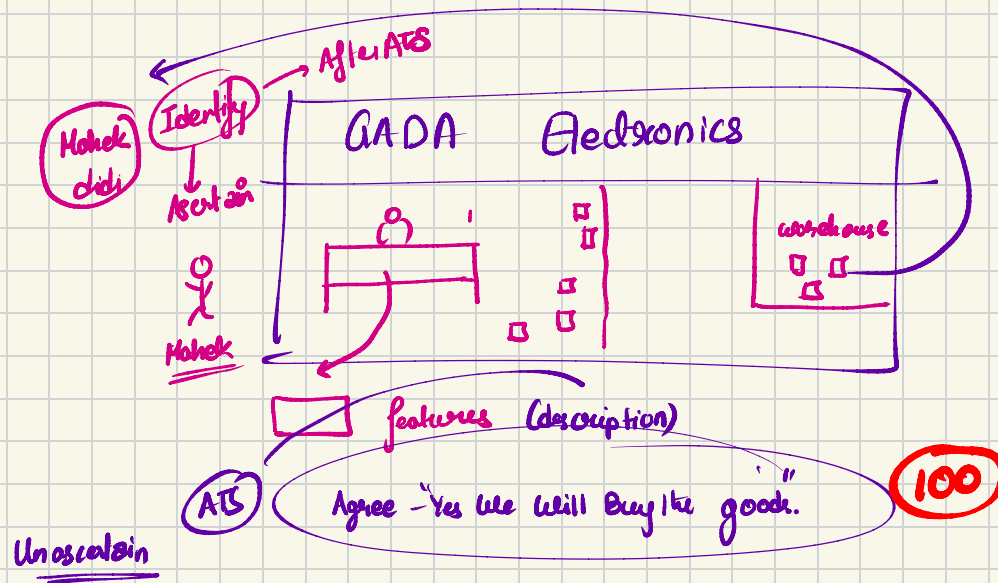 After ATS
Identify
Mohek
didi
Asertain
GADA Electronics
warehouse
Mohek
features (description)
ATS
Agree - "Yes We Will Buy the goods."
100
Unascertain